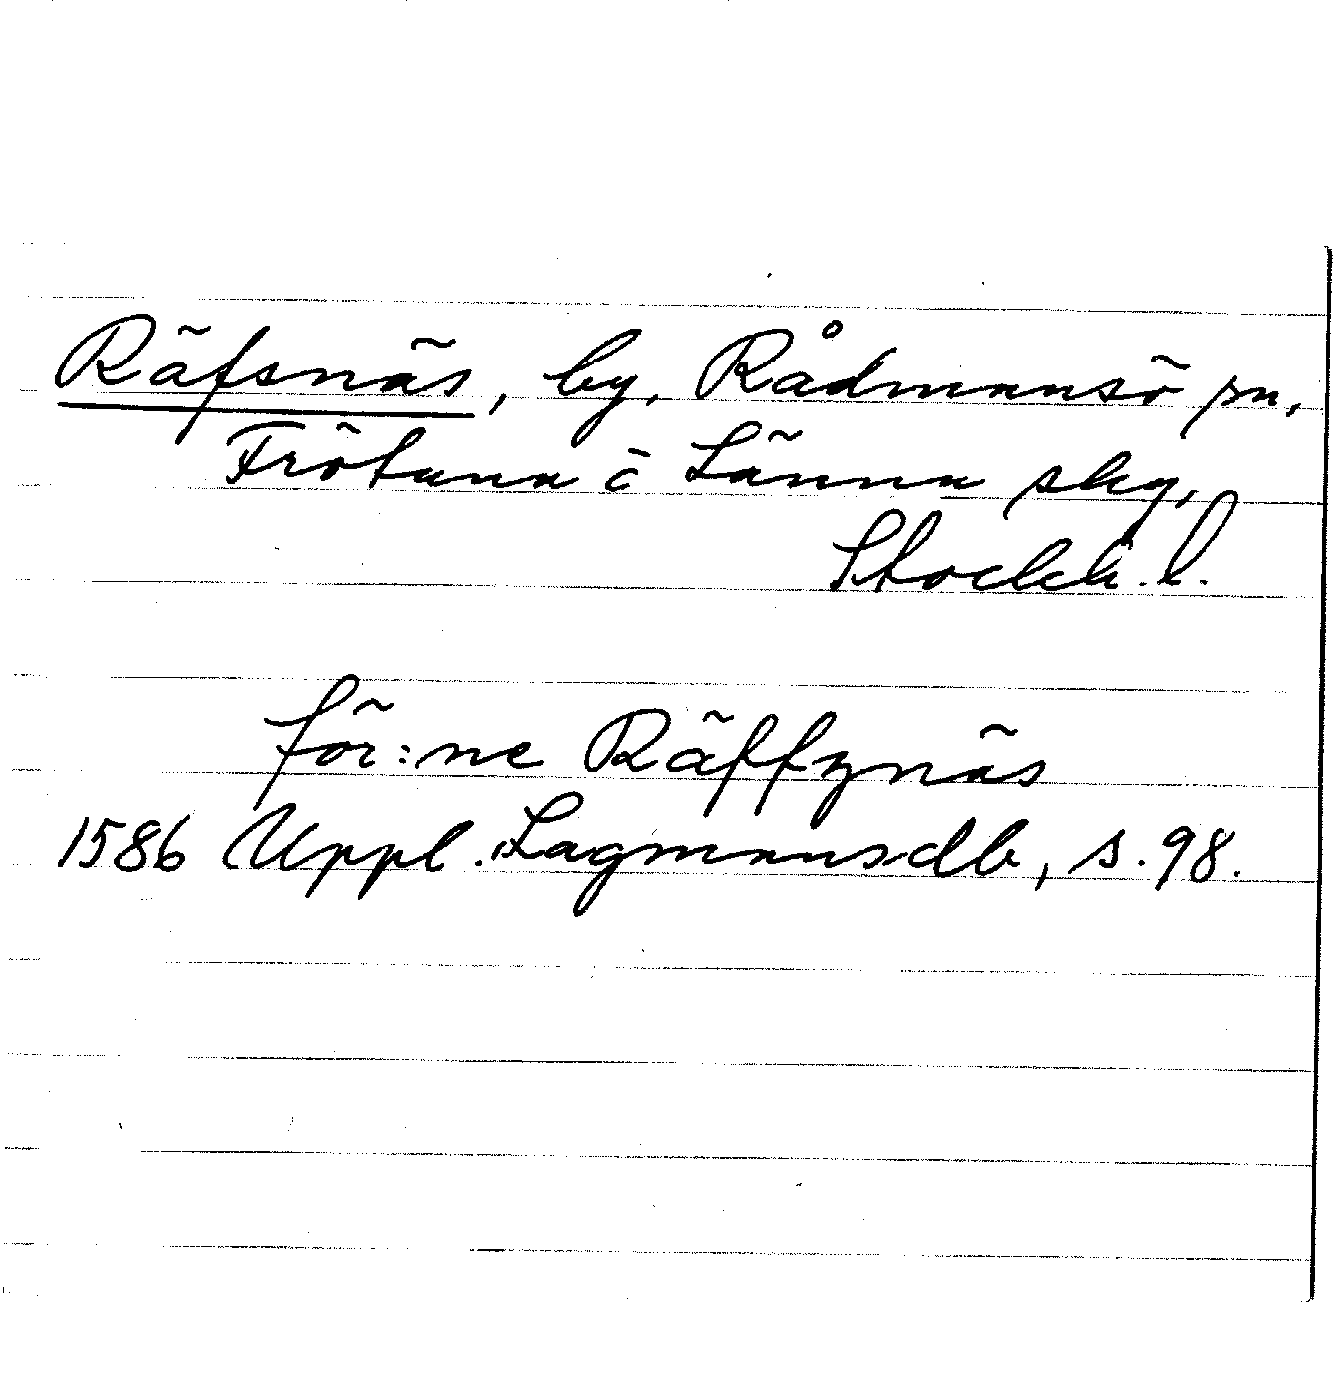 Räfsnäs, by, Rådmansö sn,
Frötuna o Länna skg,
Stockh. l.
för:ne Räffznäs
1586 Uppl. Lagmansdb, s. 98.